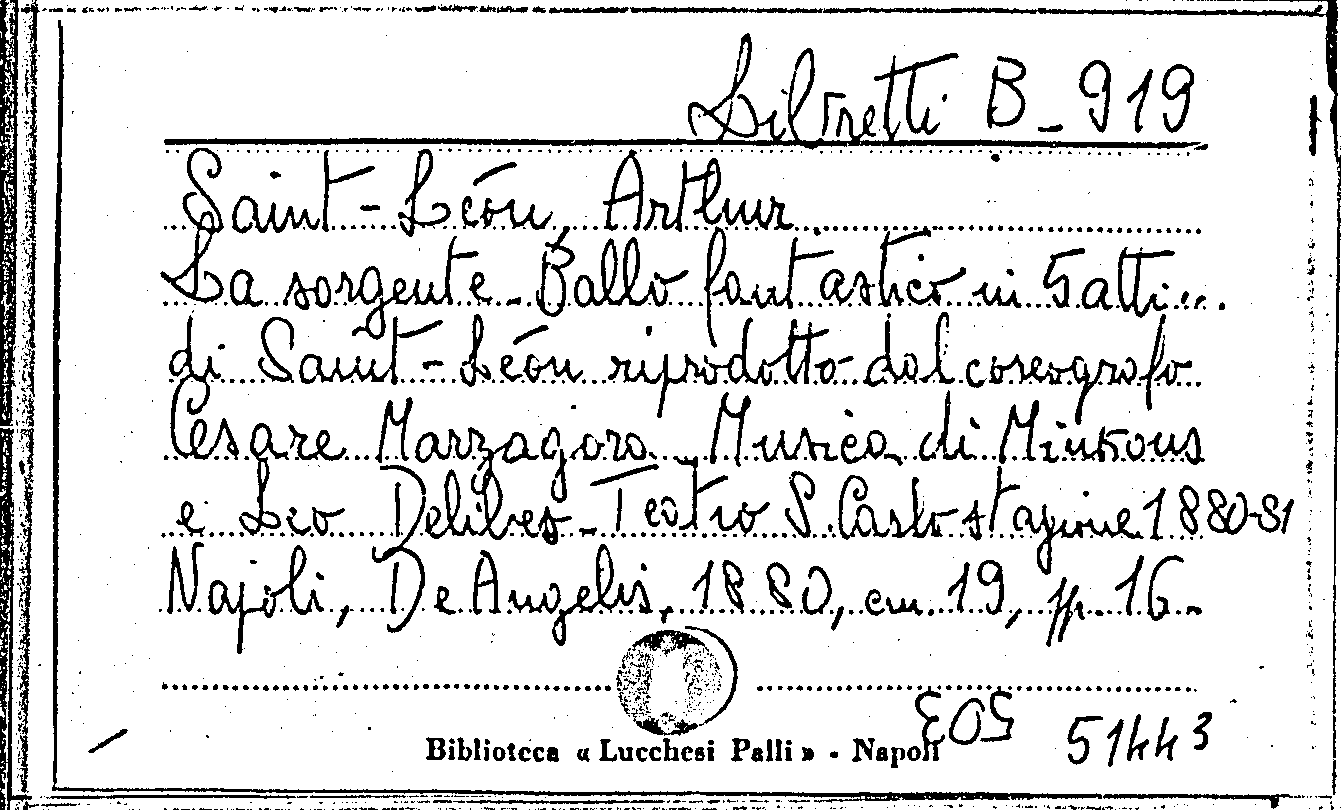 Libretti B_919
Saint-Léon, Arthur
La sorgente_Ballo fantastico in 5 atti...
di Saint-Léon riprodotto dal coreografo
Cesare Marzagora_Musica di Minkous
e Leo Delibes_Teatro S. Carlo stagione 1880-81
Napoli, De Angelis, 1880, cm. 19, pp. 16.
Biblioteca « Lucchesi Palli » - Napoli
51443